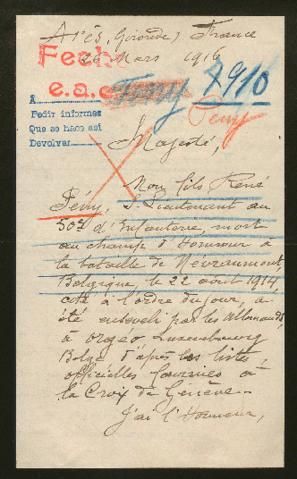 Arès, Gironde, France
26 Mars 1916
Fecha
e.a.c.
7910
A
Pedir informes
Que se haga así
Devolver
Majesté,
Mon fils René
Fémy, S. Lieutenant au
50e d'Infanterie, mort
au champ d'Honneur à
la bataille de Névraumont,
Belgique, le 22 août 1914,
cité à l'ordre du jour, a
été enseveli par les allemands,
à orgeo Luxembourg
Belge d'après les listes
officielles fournies à
la Croix de Genève.
J'ai l'Honneur,